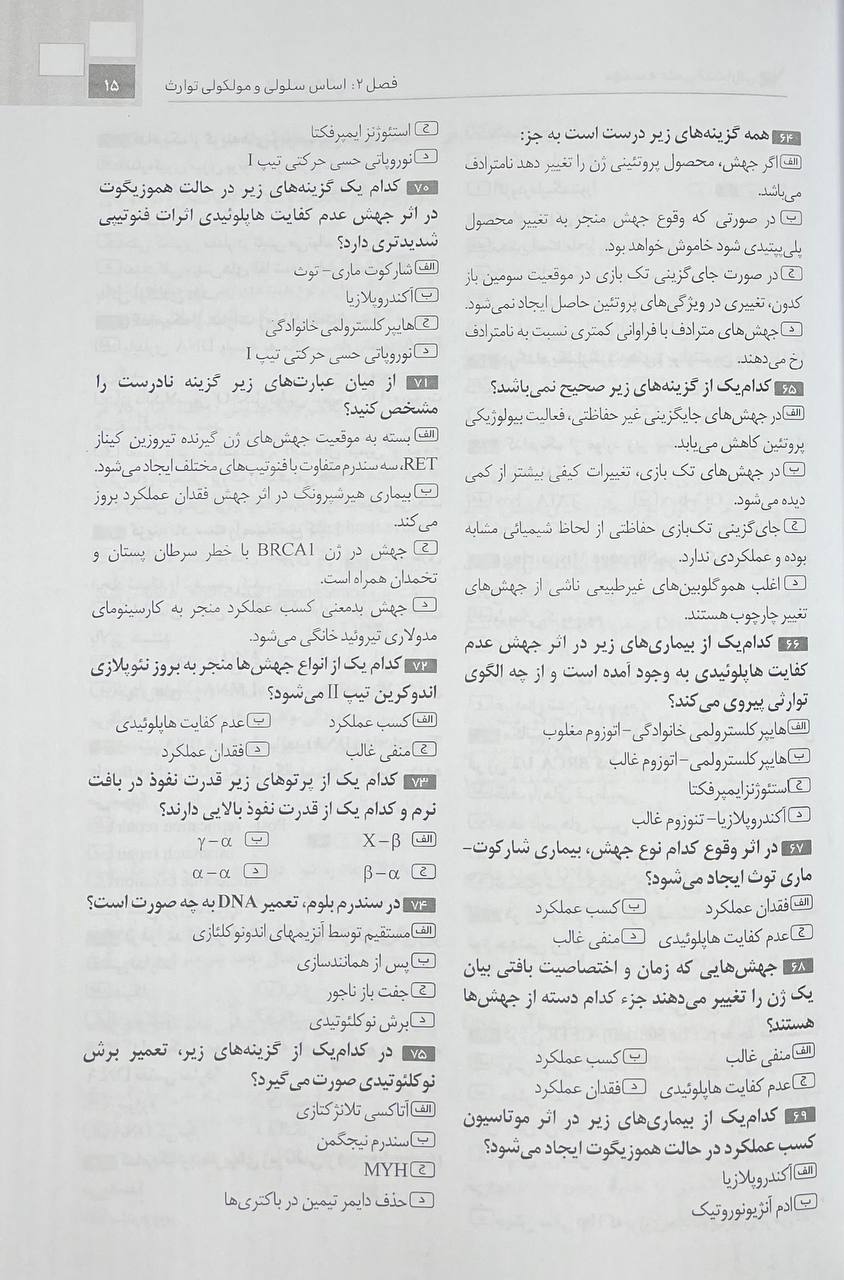 فصل ۲: اساس سلولی و مولکولی توارث
۱۵
۶۴ همه گزینه‌های زیر درست است به جز:
الف اگر جهش، محصول پروتئینی ژن را تغییر دهد نامترادف
می‌باشد.
ب در صورتی که وقوع جهش منجر به تغییر محصول
پلی‌پپتیدی شود خاموش خواهد بود.
ج در صورت جای‌گزینی تک بازی در موقعیت سومین باز
کدون، تغییری در ویژگی‌های پروتئین حاصل ایجاد نمی‌شود.
د جهش‌های مترادف با فراوانی کمتری نسبت به نامترادف
رخ می‌دهند.
۶۵ کدام‌یک از گزینه‌های زیر صحیح نمی‌باشد؟
الف در جهش‌های جایگزینی غیر حفاظتی، فعالیت بیولوژیکی
پروتئین کاهش می‌یابد.
ب در جهش‌های تک بازی، تغییرات کیفی بیشتر از کمی
دیده می‌شود.
ج جای‌گزینی تک‌بازی حفاظتی از لحاظ شیمیائی مشابه
بوده و عملکردی ندارد.
د اغلب هموگلوبین‌های غیرطبیعی ناشی از جهش‌های
تغییر چارچوب هستند.
۶۶ کدام‌یک از بیماری‌های زیر در اثر جهش عدم
کفایت هاپلوئیدی به وجود آمده است و از چه الگوی
توارثی پیروی می‌کند؟
الف هایپرکلسترولمی خانوادگی-اتوزوم مغلوب
ب هایپرکلسترولمی-اتوزوم غالب
ج استئوژنزایمپرفکتا
د آکندروپلازیا- تنوزوم غالب
۶۷ در اثر وقوع کدام نوع جهش، بیماری شارکوت-
ماری توث ایجاد می‌شود؟
الف فقدان عملکرد ب کسب عملکرد
ج عدم کفایت هاپلوئیدی د منفی غالب
۶۸ جهش‌هایی که زمان و اختصاصیت بافتی بیان
یک ژن را تغییر می‌دهند جزء کدام دسته از جهش‌ها
هستند؟
الف منفی غالب ب کسب عملکرد
ج عدم کفایت هاپلوئیدی د فقدان عملکرد
۶۹ کدام‌یک از بیماری‌های زیر در اثر موتاسیون
کسب عملکرد در حالت هموزیگوت ایجاد می‌شود؟
الف آکندروپلازیا
ب ادم آنژیونوروتیک
ج استئوژنز ایمپرفکتا
د نوروپاتی حسی حرکتی تیپ I
۷۰ کدام یک گزینه‌های زیر در حالت هموزیگوت
در اثر جهش عدم کفایت هاپلوئیدی اثرات فنوتیپی
شدیدتری دارد؟
الف شارکوت ماری- توث
ب آکندروپلازیا
ج هایپر کلسترولمی خانوادگی
د نوروپاتی حسی حرکتی تیپ I
۷۱ از میان عبارت‌های زیر گزینه نادرست را
مشخص کنید؟
الف بسته به موقعیت جهش‌های ژن گیرنده تیروزین کیناز
RET، سه سندرم متفاوت با فنوتیپ‌های مختلف ایجاد می‌شود.
ب بیماری هیرشپرونگ در اثر جهش فقدان عملکرد بروز
می‌کند.
ج جهش در ژن BRCA1 با خطر سرطان پستان و
تخمدان همراه است.
د جهش بدمعنی کسب عملکرد منجر به کارسینومای
مدولاری تیروئید خانگی می‌شود.
۷۲ کدام یک از انواع جهش‌ها منجر به بروز نئوپلازی
اندوکرین تیپ II می‌شود؟
الف کسب عملکرد ب عدم کفایت هاپلوئیدی
ج منفی غالب د فقدان عملکرد
۷۳ کدام یک از پرتوهای زیر قدرت نفوذ در بافت
نرم و کدام یک از قدرت نفوذ بالایی دارند؟
الف X-β ب γ-α
ج β-α د α-α
۷۴ در سندرم بلوم، تعمیر DNA به چه صورت است؟
الف مستقیم توسط آنزیمهای اندونوکلئازی
ب پس از همانندسازی
ج جفت باز ناجور
د برش نوکلئوتیدی
۷۵ در کدام‌یک از گزینه‌های زیر، تعمیر برش
نوکلئوتیدی صورت می‌گیرد؟
الف آتاکسی تلانژکتازی
ب سندرم نیجگمن
ج MYH
د حذف دایمر تیمین در باکتری‌ها